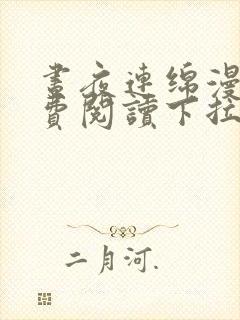 晝夜連綿漫
費閱讀下拉
二月河.